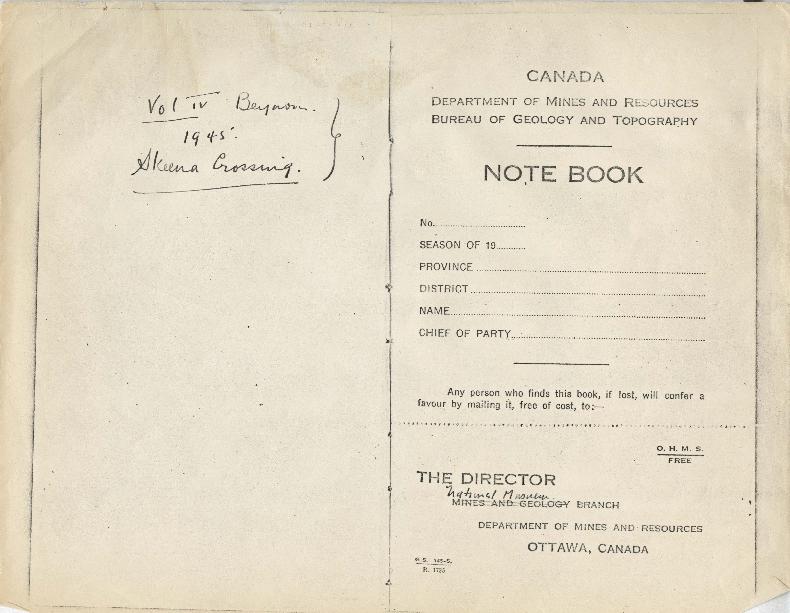 Vol IV Beynon.
1945.
Skeena Crossing.
CANADA
DEPARTMENT OF MINES AND RESOURCES
BUREAU OF GEOLOGY AND TOPOGRAPHY
NOTE BOOK
No.
SEASON OF 19
PROVINCE
DISTRICT
NAME
CHIEF OF PARTY
Any person who finds this book, if lost, will confer a
favour by mailing it, free of cost, to:—
O. H. M. S.
FREE
THE DIRECTOR
National Museum
MINES AND GEOLOGY BRANCH
DEPARTMENT OF MINES AND RESOURCES
OTTAWA, CANADA
R. 1735